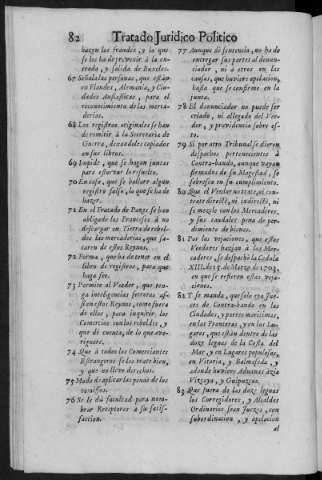 82 Tratado Juridico Politico
hazen los fraudes, y lo que
se les ha de prevenir à la en-
trada, y salida de Baxeles.
67 Señala las personas, que estàn
en Flandes, Alemania, y Ciu-
dades Anseaticas, para el
reconocimiento de las merca-
derias.
68 Los registros originales se han
de remitir à la Secretaria de
Guerra, dexando copiados
en sus libros.
69 Impide, que se hagan juntas
para estorvar lo resuelto.
70 En caso, que se hallare algun
registro falso, lo que se ha de
hazer.
71 En el Tratado de Pazes se han
obligado los Franceses à no
descargar en Tierra de rebel-
des las mercaderias, que sa-
caren de estos Reynos.
72 Forma, que ha de tener en el
libro de registros, para que
haga fee.
73 Permite al Veedor, que ten-
ga inteligencias secretas assi
en estos Reynos, como fuera
de ellos, para impedir los
Comercios con los rebeldes, y
que dè cuenta, de lo que ave-
riguare.
74 Que à todos los Comerciantes
Estrangeros se les trate bien,
y que no lleve derechos.
75 Modo de aplicar las penas de los
comissos.
76 Se le diò facultad para nom-
brar Receptores à su satis-
faccion.
77 Aunque dè sentencia, no ha de
entregar las partes al denun-
ciador, ni à otros en las
causas, que huviere apelacion,
hasta que se confirme en la
junta.
78 El denunciador no puede ser
criado, ni allegado del Vee-
dor, y providencia sobre es-
to.
79 Si por otro Tribunal se dieren
despachos pertenecientes à
Contra-bando, aunque vayan
firmados de su Magestad, se
sobresea en su cumplimiento.
80 Que el Veedor no trate, ni con-
trate directè, ni indirectè, ni
se mezcle con los Mercaderes,
y sus caudales pena de per-
dimiento de bienes.
81 Por las vejaciones, que estos
Veedores hazian à los Mer-
caderes, se despachò la Cedula
XIII. de 15. de Março de 1703.
en que se refieren estas veja-
ciones.
82 Y se manda, que solo aya Jue-
zes de Contra-bando en las
Ciudades, y partes maritimas,
en las Fronteras, y en los Lu-
gares, que estàn dentro de las
doze leguas de la Costa del
Mar, y en Lugares populosos,
en Vitoria, y Balmaseda, y
donde huviere Aduanas àzia
Vizcaya, y Guipuzcoa.
83 Que fuera de las doze leguas
los Corregidores, y Alcaldes
Ordinarios sean Juezes, con
subordinacion, y apelacion
al